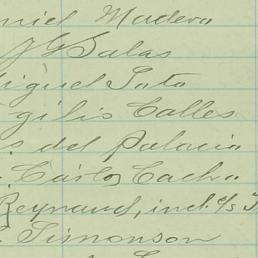 niel Madero
J G Salas
Miguel Soto
gilio Calles
s del Palacio
Carlos Cacho
Reynaud, incl. c/s
Simonson